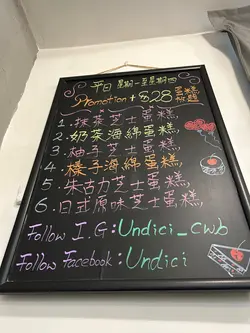 平日 星期一至星期四
Promotion + $28 蛋糕
1. 抹茶芝士蛋糕
2. 奶茶海綿蛋糕
3. 柚子芝士蛋糕
4. 榛子海綿蛋糕
5. 朱古力芝士蛋糕
6. 日式原味芝士蛋糕
Follow I.G: Undici_cwb
Follow Facebook: Undici